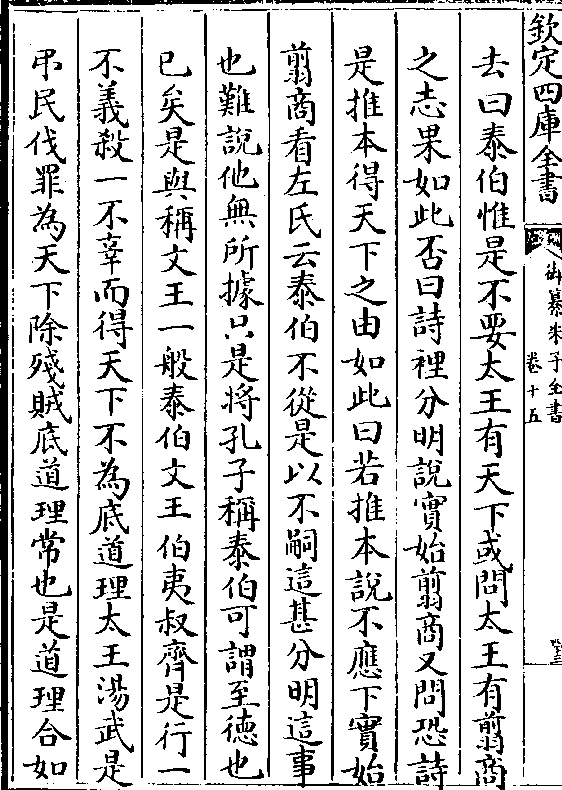 欽定四庫全書
御纂朱子全書
卷十五
去曰泰伯惟是不要太王有天下或問太王有翦商
之志果如此否曰詩裡分明說實始翦商又問恐詩
是推本得天下之由如此曰若推本說不應下實始
翦商看左氏云泰伯不從是以不嗣這甚分明這事
也難說他無所據只是將孔子稱泰伯可謂至德也
已矣是與稱文王一般泰伯文王伯夷叔齊是行一
不義殺一不辜而得天下不為底道理太王湯武是
弔民伐罪為天下除殘賊底道理常也是道理合如